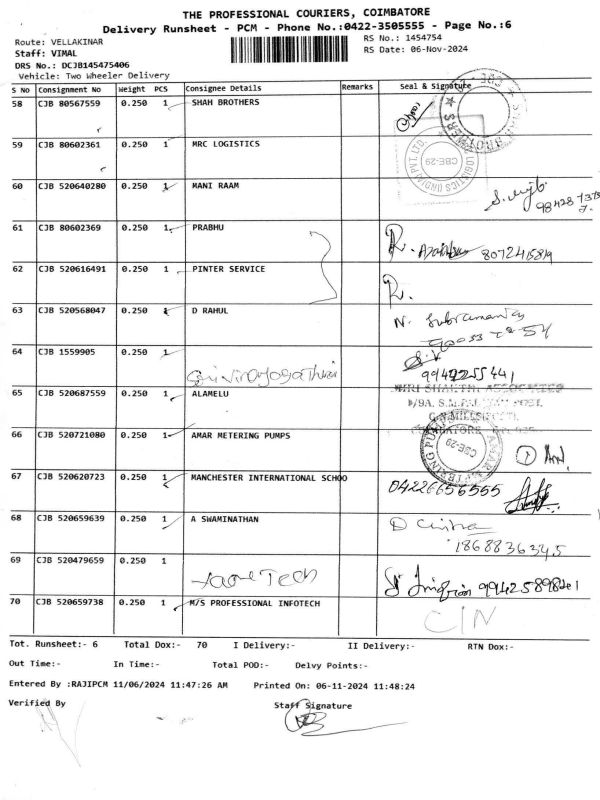 THE PROFESSIONAL COURIERS, COIMBATORE
Delivery Runsheet - PCM - Phone No.:0422-3505555 - Page No.:6
Route: VELLAKINAR
RS No.: 1454754
Staff: VIMAL
RS Date: 06-Nov-2024
DRS No.: DCJB145475406
Vehicle: Two Wheeler Delivery
S No Consignment No Weight PCS Consignee Details Remarks Seal & Signature
58 CJB 80567559 0.250 1 SHAH BROTHERS
59 CJB 80602361 0.250 1 MRC LOGISTICS
LOGISTICS (INDIA) PVT. LTD.
CBE-29
60 CJB 520640280 0.250 1 MANI RAAM
61 CJB 80602369 0.250 1 PRABHU
R.
62 CJB 520616491 0.250 1 PINTER SERVICE
R.
63 CJB 520568047 0.250 1 D RAHUL
N. Subramaniam
64 CJB 1559905 0.250 1
65 CJB 520687559 0.250 1 ALAMELU
SHRI SHAKTHI ASSOCIATES
66 CJB 520721080 0.250 1 AMAR METERING PUMPS
CBE-29
67 CJB 520620723 0.250 1 MANCHESTER INTERNATIONAL SCHOO
04226656555
68 CJB 520659639 0.250 1 A SWAMINATHAN
D Chitra
1868836345
69 CJB 520479659 0.250 1
Tech
70 CJB 520659738 0.250 1 M/S PROFESSIONAL INFOTECH
Tot. Runsheet:- 6 Total Dox:- 70 I Delivery:- II Delivery:- RTN Dox:-
Out Time:- In Time:- Total POD:- Delvy Points:-
Entered By :RAJIPCM 11/06/2024 11:47:26 AM Printed On: 06-11-2024 11:48:24
Verified By Staff Signature